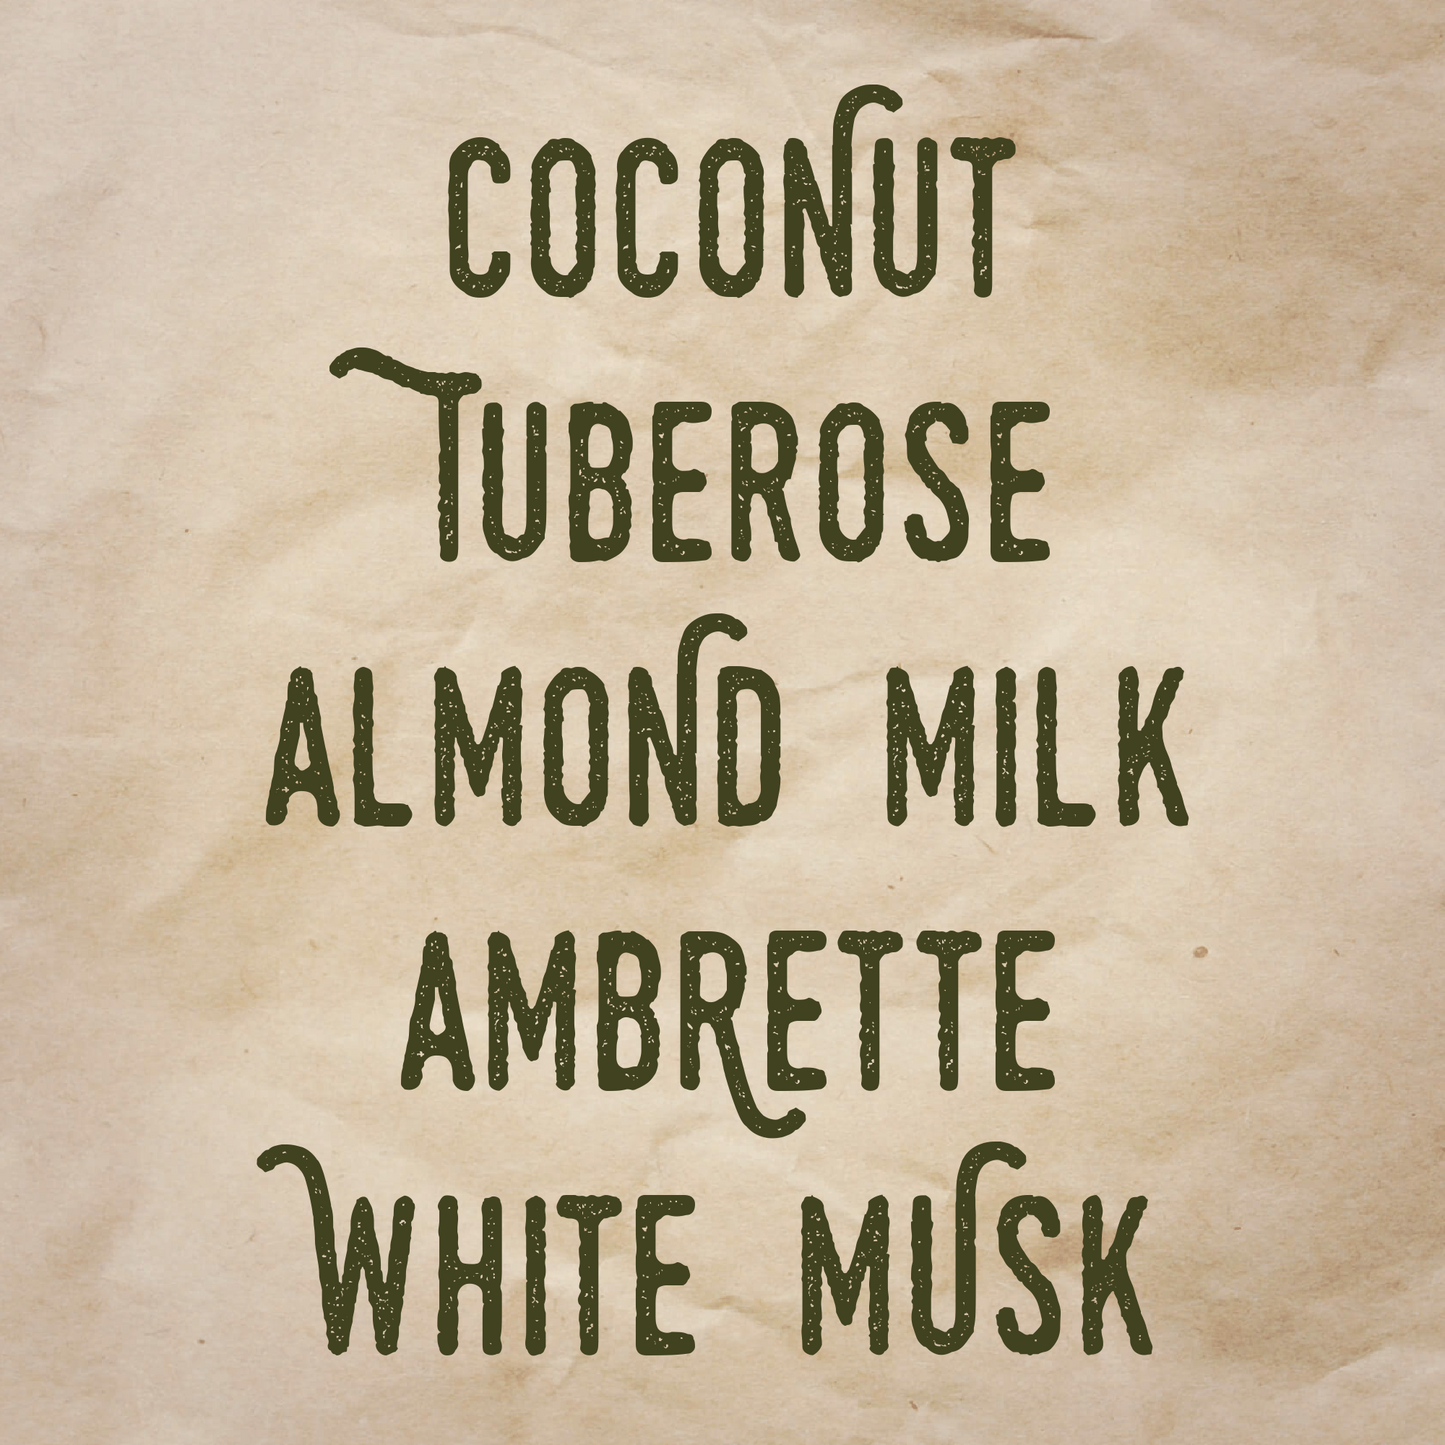 COCONUT
TUBEROSE
ALMOND MILK
AMBRETTE
WHITE MUSK